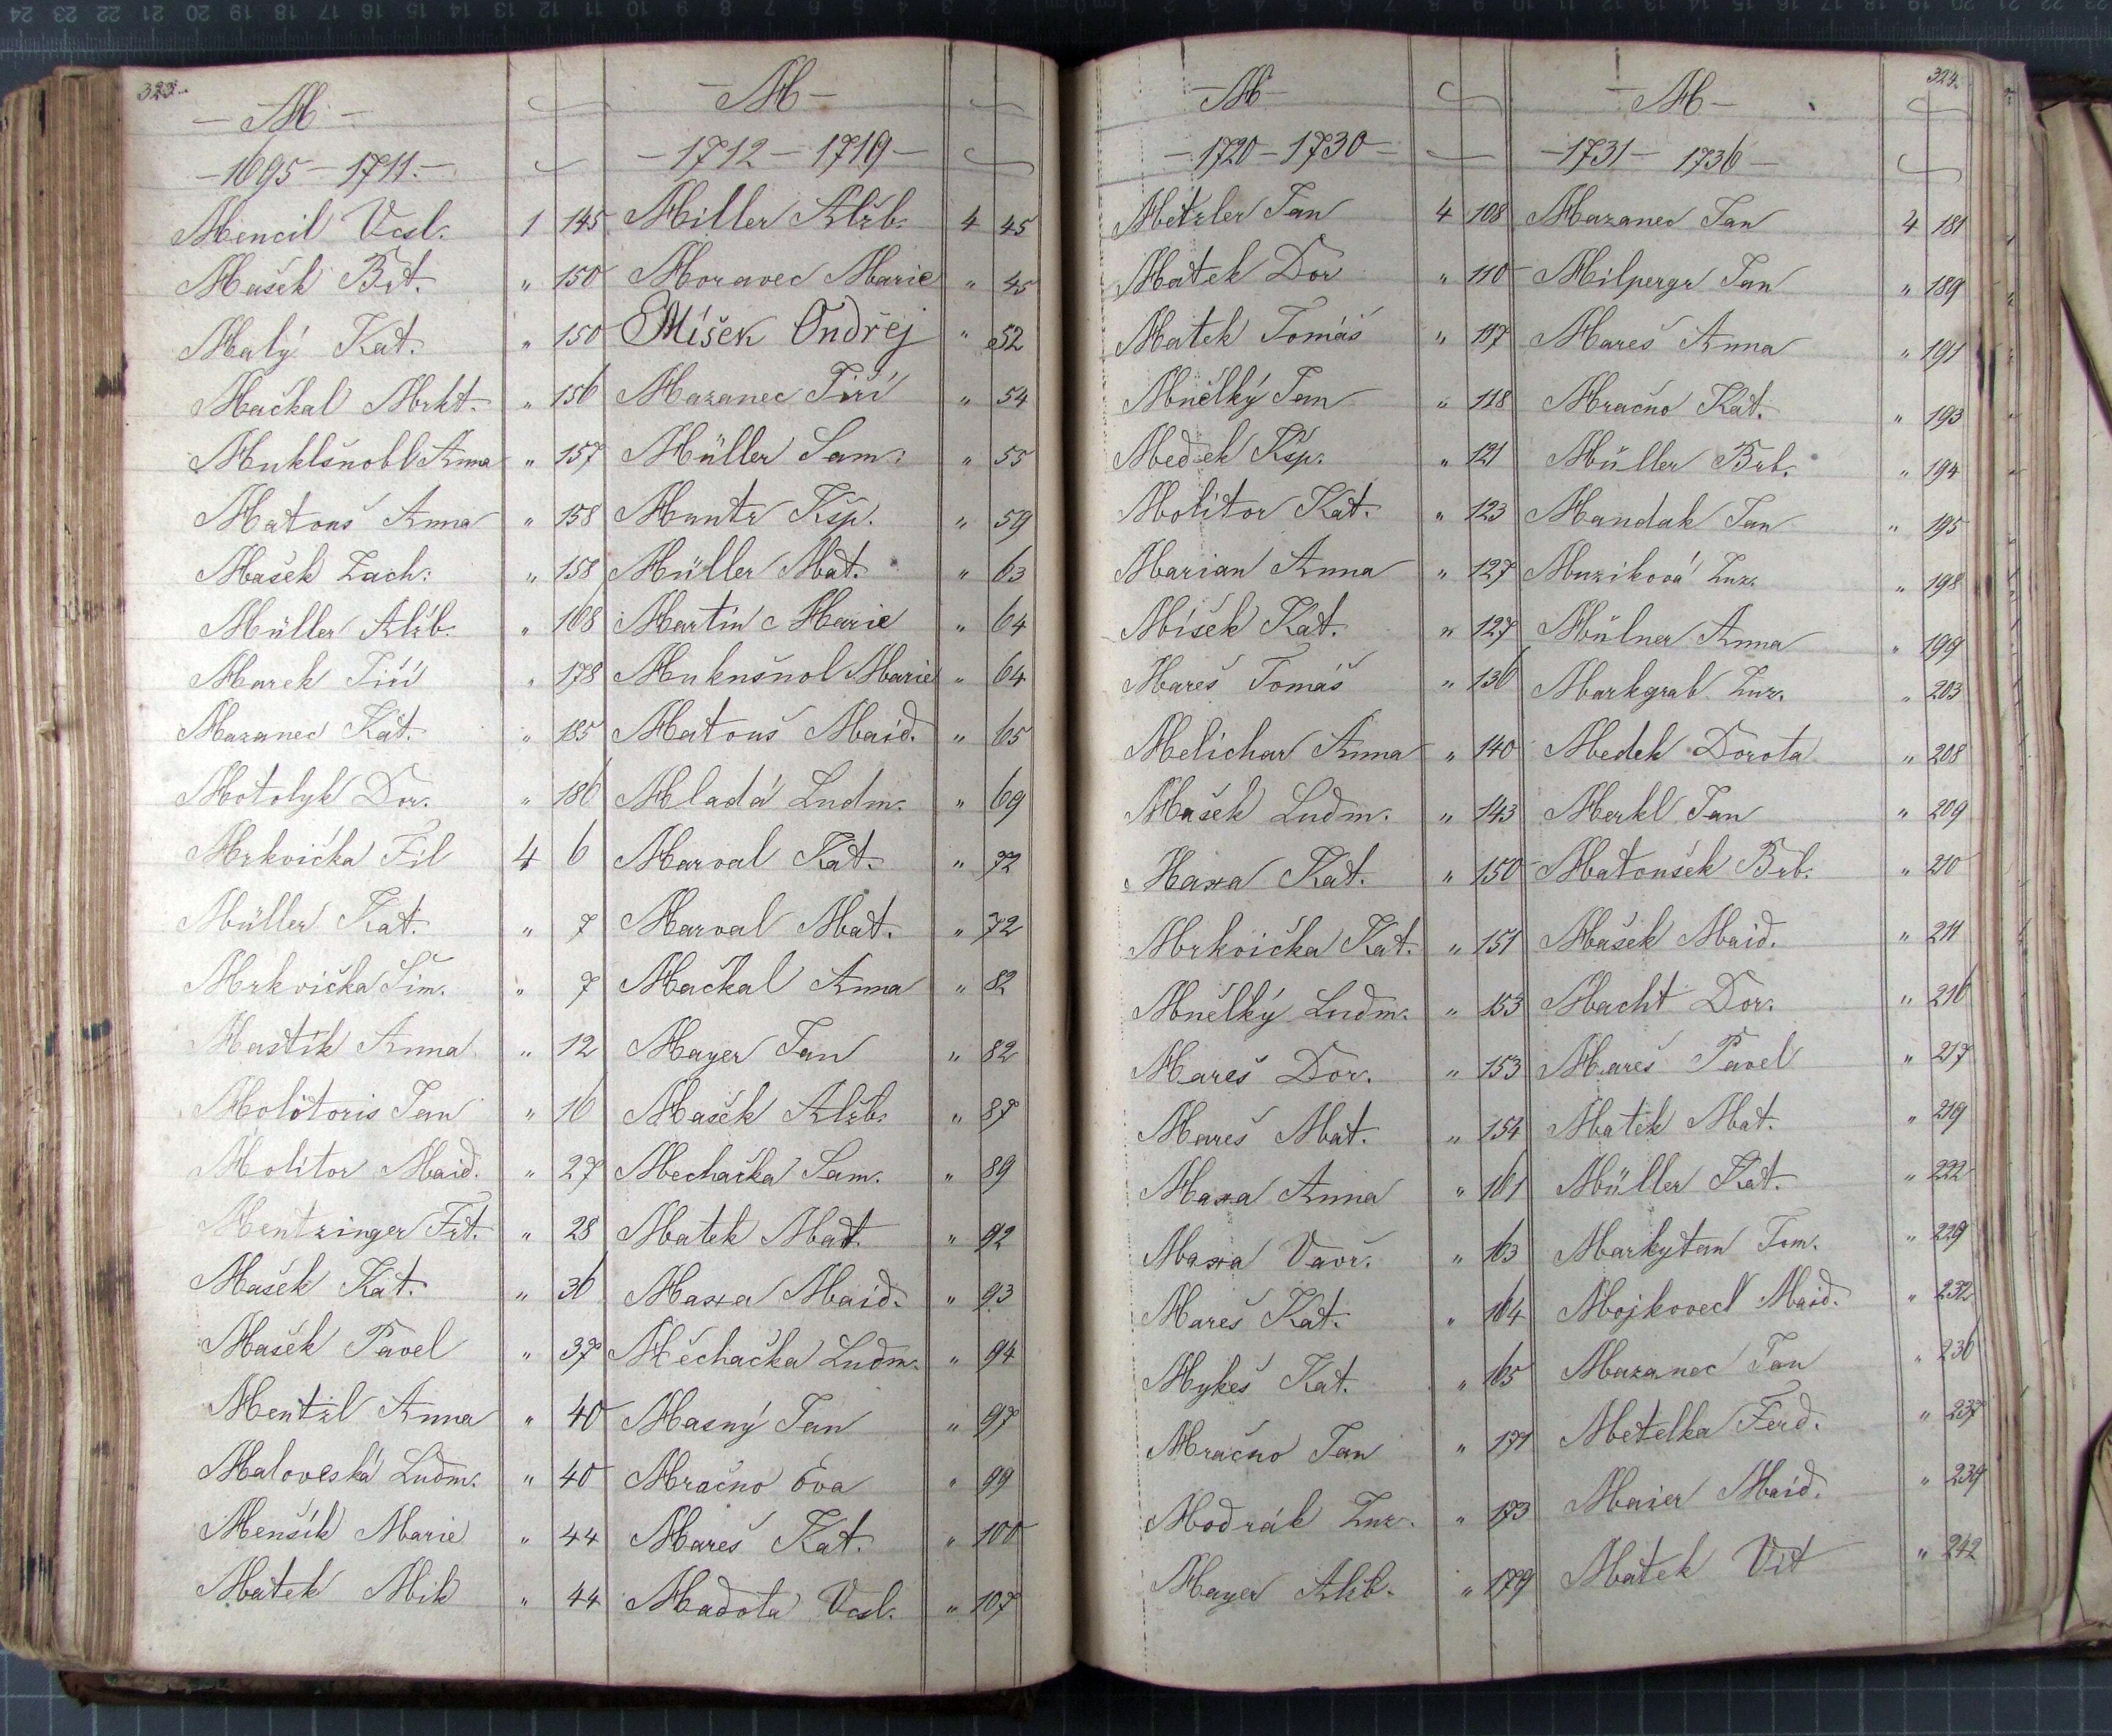 323.
— M —
— 1695 — 1711. —
Mencil Vcsl. 1 145
Mašek Brt. " 150
Malý Kat. " 150
Mačkal Mrkt. " 156
Muklšnobl Anna " 157
Matouš Anna " 158
Mašek Zach: " 158
Müller Alžb. " 168
Marek Jiří " 178
Mazanec Kat. " 185
Motolyk Dor. " 186
Mrkvička Fil 4 6
Müller Kat. " 7
Mrkvička Šim. " 7
Mastík Anna " 12
Molitoris Jan " 16
Molitor Maid. " 27
Mentzinger Frt. " 28
Mašek Kat. " 36
Mašek Pavel " 37
Mentzl Anna " 40
Maloveská Ludm. " 40
Menšík Marie " 44
Matek Mik " 44
— M —
— 1712 — 1719 —
Miller Alžb. 4 45
Moravec Marie " 45
Míšek Ondřej " 52
Mazanec Jiří " 54
Müller Sam: " 55
Muntz Kšp. " 59
Müller Mat. " 63
Martinc Marie " 64
Muknšnol Marie " 64
Matouš Maid. " 65
Mladá Ludm. " 69
Marval Kat. " 72
Marval Mat. " 72
Mačkal Anna " 82
Mayer Jan " 82
Mašek Alžb. " 87
Mechačka Sam. " 89
Matek Mat. " 92
Maxa Maid. " 93
Měchačka Ludm. " 94
Masný Jan " 97
Mračno Eva " 99
Mareš Kat. " 100
Madota Vcsl. " 107
324.
— M —
— 1720 — 1730 —
Metzler Jan 4 108
Matek Dor " 110
Matek Tomáš " 117
Mnělký Jan " 118
Medek Kšp. " 121
Molitor Kat. " 123
Marian Anna " 127
Míšek Kat. " 127
Mareš Tomáš " 136
Melichar Anna " 140
Mašek Ludm. " 143
Maxa Kat. " 150
Mrkvička Kat. " 151
Mnělký Ludm. " 153
Mareš Dor. " 153
Mareš Mat. " 154
Maxa Anna " 161
Maxa Vavř. " 163
Mareš Kat. " 164
Mykeš Kat. " 165
Mračno Jan " 171
Modrák Zuz. " 173
Mayer Alžb. " 179
— M —
— 1731 — 1736 —
Mazanec Jan 4 181
Milpergr Jan " 189
Mareš Anna " 191
Mračno Kat. " 193
Müller Brb. " 194
Mandak Jan " 195
Muziková Zuz. " 198
Mülner Anna " 199
Markgrab Zuz. " 203
Medek Dorota " 208
Merkl Jan " 209
Matoušek Brb. " 210
Mašek Maid. " 211
Macht Dor. " 216
Mareš Pavel " 217
Matek Mat. " 219
Müller Kat. " 222
Markytan Tom. " 229
Mojkovecl Maid. " 232
Mazanec Jan " 236
Metelka Ferd. " 237
Maier Maid. " 239
Matek Vít " 242